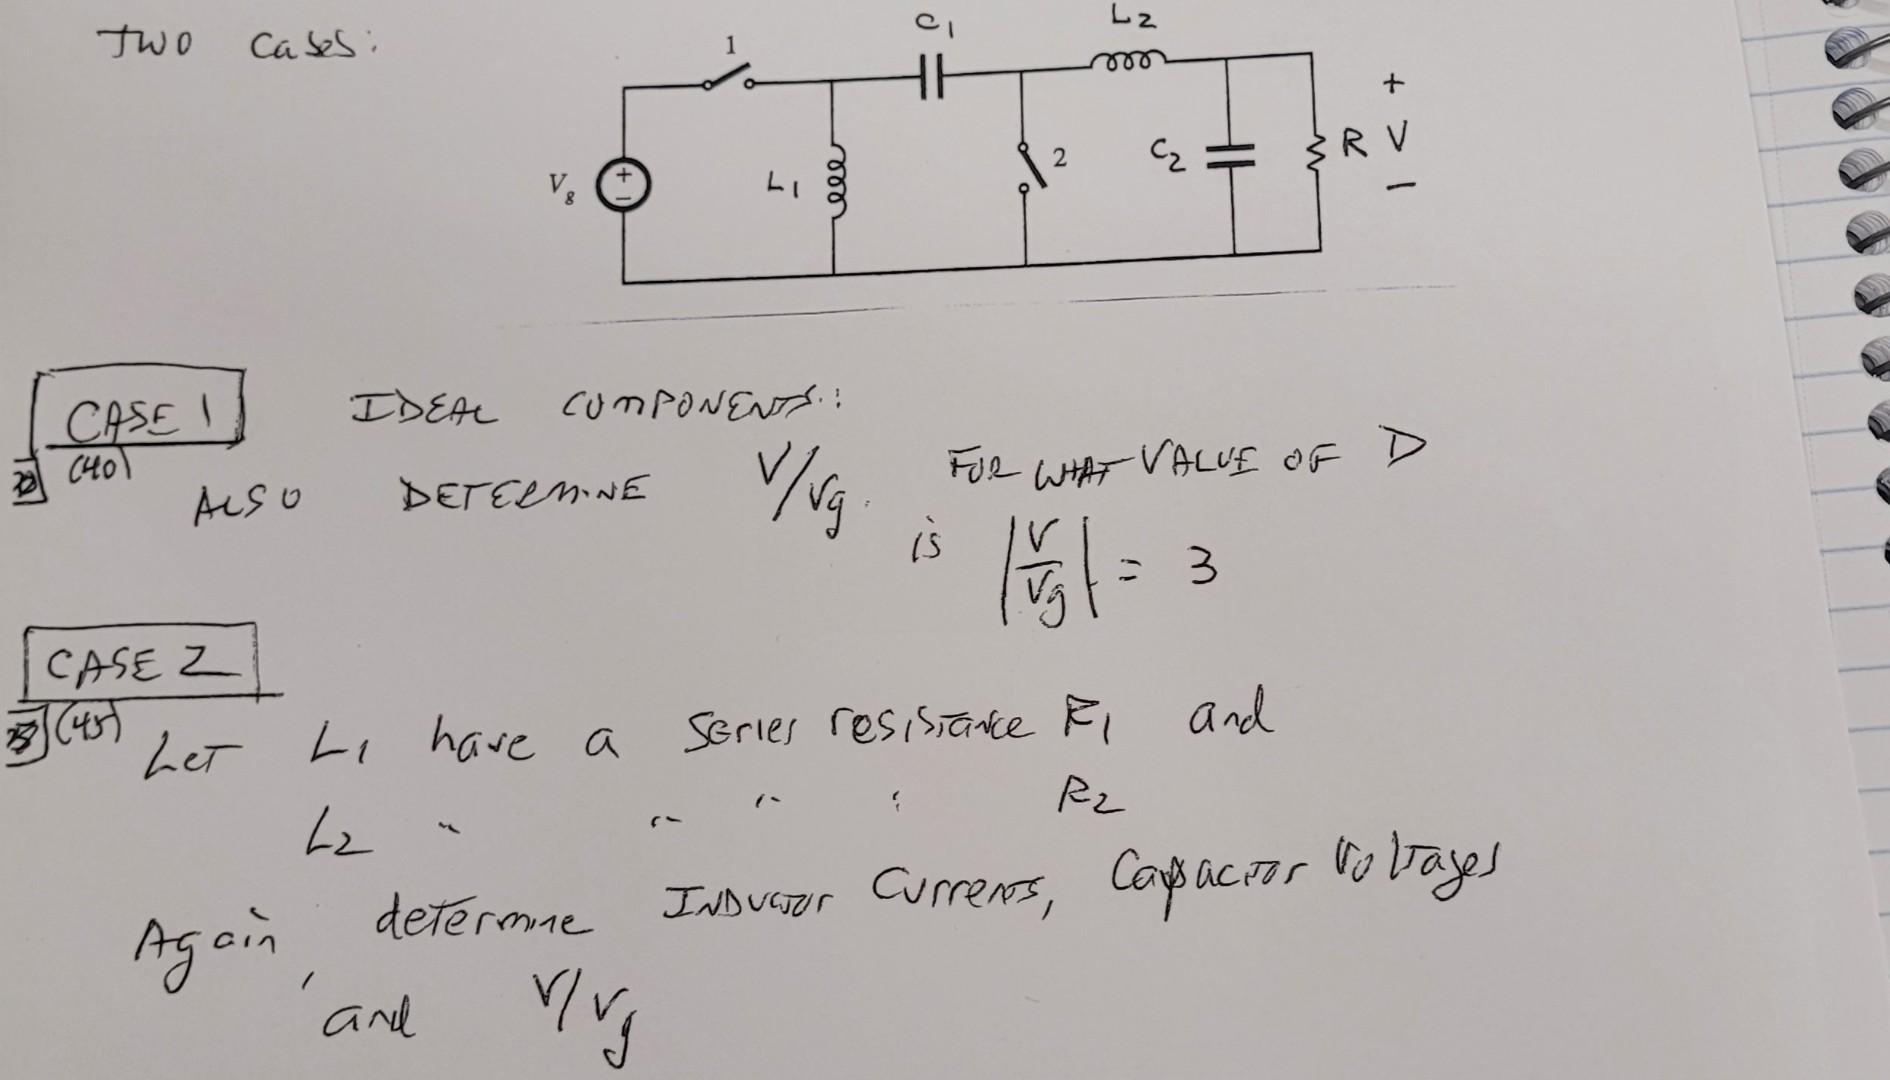 TWO Cases:
1
C1
L2
Vg
+
−
L1
2
C2
R
+
V
−
CASE 1
(40)
IDEAL COMPONENTS:
ALSO DETERMINE V/Vg. FOR WHAT VALUE OF D
is |V/Vg| = 3
CASE 2
(45)
LET L1 have a series resistance R1 and
L2 " " " " R2
Again, determine INDUCTOR Currents, Capacitor Voltages
and V/Vg